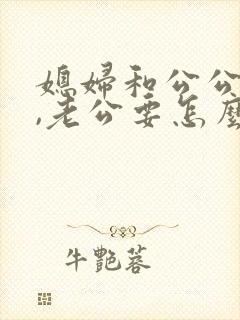 媳婦和公公
,老公要怎麼
牛艷蓉